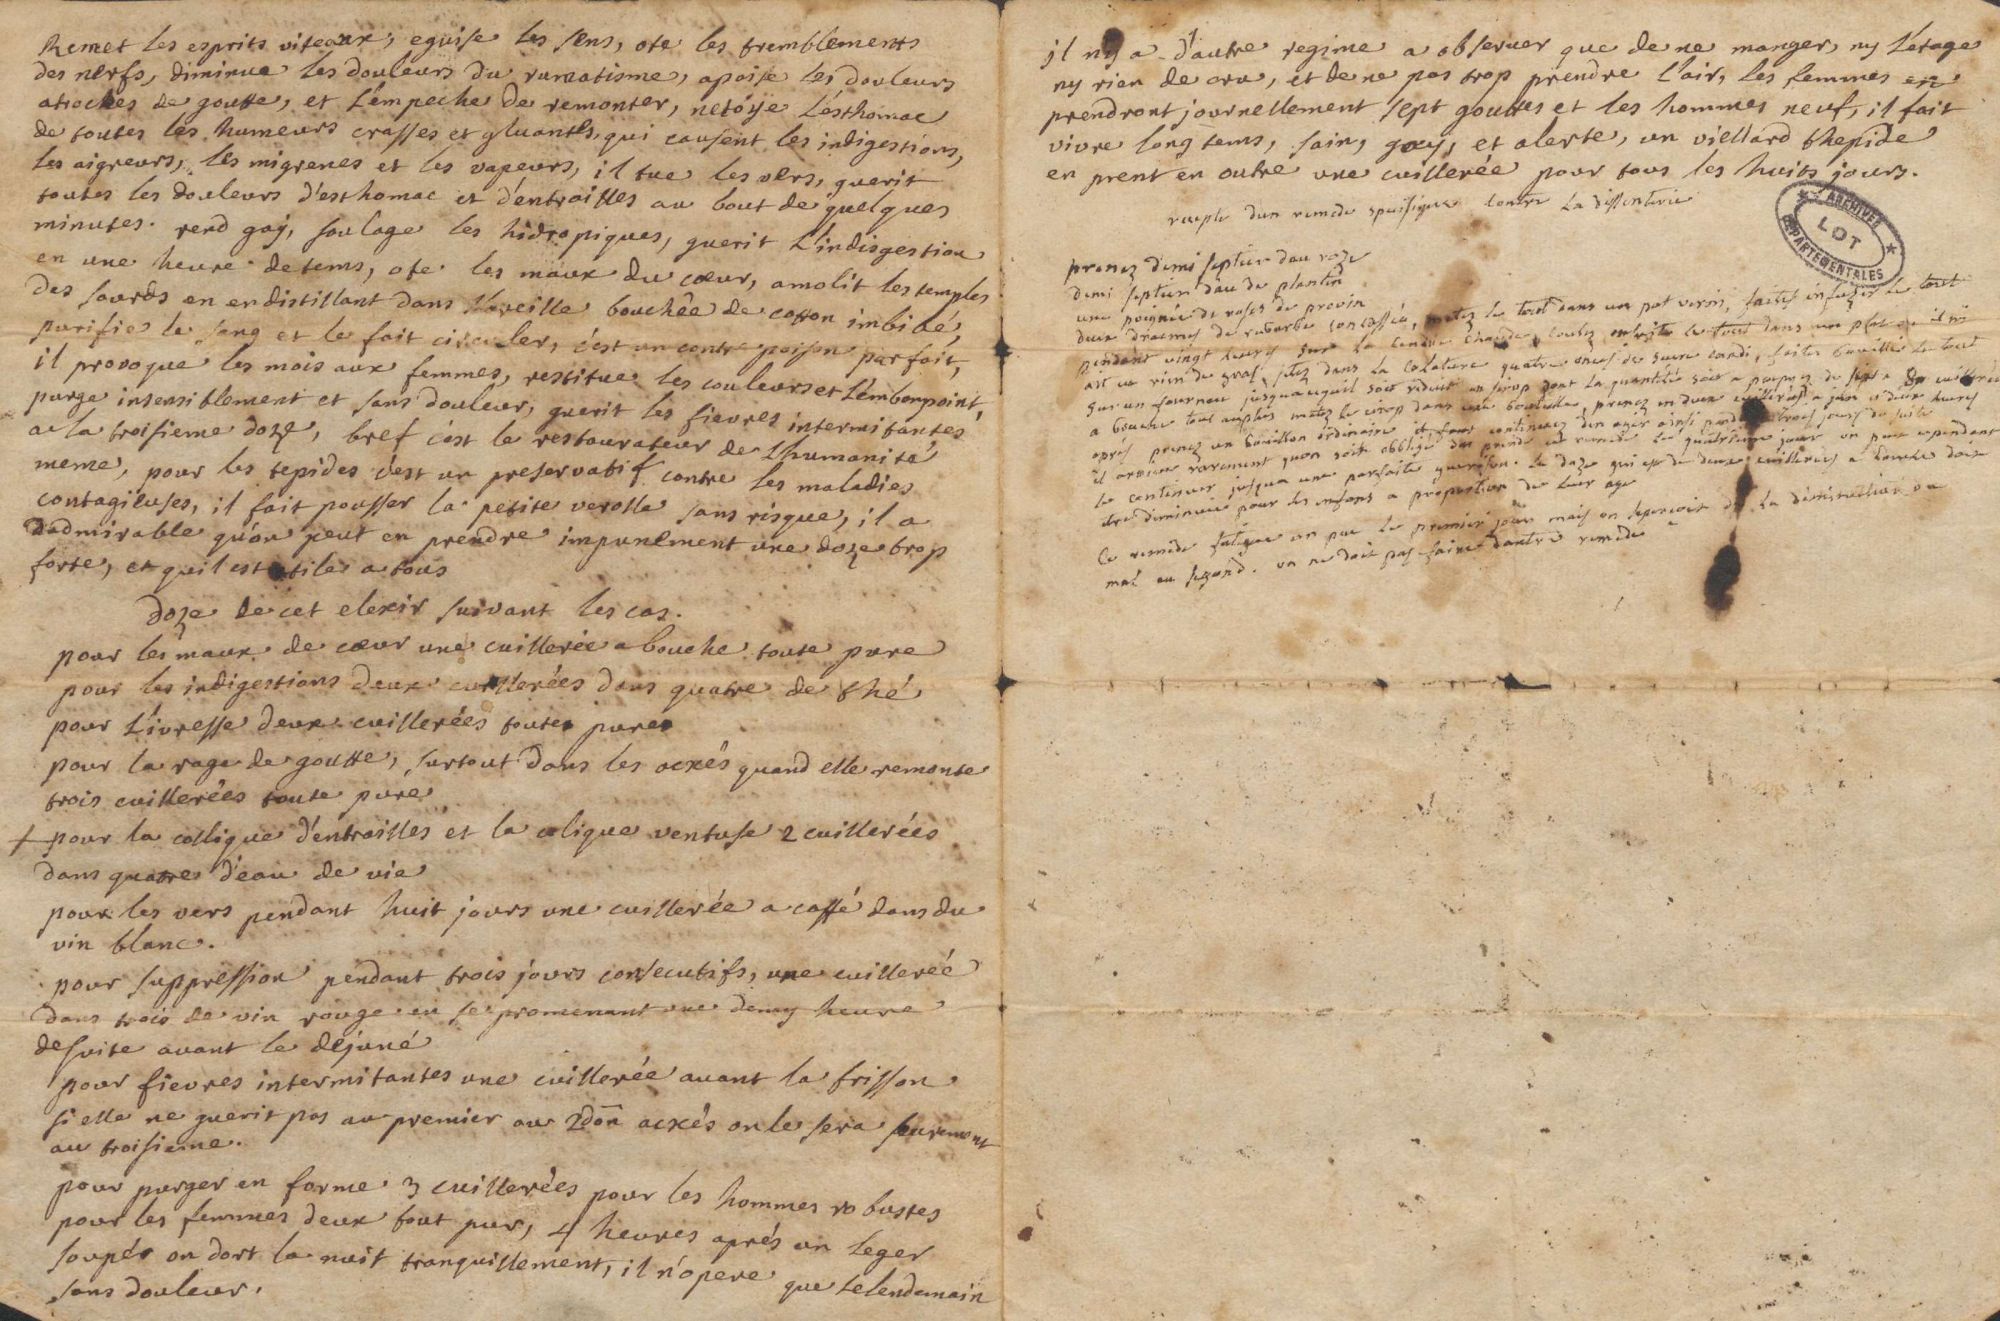 Remet les esprits viteaux, eguise les sens, ote les tremblements
des nerfs, diminue les douleurs du rumatisme, apaise les douleurs
atroches de goutte, et l'empeche de remonter, netoÿe l'esthomac
de toutes les humeurs crasses et gluantes, qui causent les indigestions,
les aigreurs, les migrenes et les vapeurs, il tue les vers, guerit
toutes les douleurs d'esthomac et d'entrailles au bout de quelques
minutes. rend gaÿ, soulage les hidropiques, guerit l'indisgestion
en une heure de tems, ote les maux du cœur, amolit les temples
des sourds en en distillant dans l'oreille bouchée de cotton imbibé,
purifie le sang et le fait circuler, c'est un contre poison parfait,
il provoque les mois aux femmes, restitue les couleurs et l'embonpoint,
purge insensiblement et sans douleur, guerit les fievres intermitantes
a la troisieme doze, bref c'est le restaurateur de l'humanité
meme, pour les tepides c'est un preservatif contre les maladies
contagieuses, il fait pousser la petite verolle sans risque, il a
d'admirable qu'on peut en prendre impunement une doze trop
forte, et qu'il est utile a tous
doze de cet elexir suivant les cas.
pour les maux de cœur une cuillerée a bouche toute pure
pour les indigestions deux cuillerées dans quatre de thé
pour l'ivresse deux cuillerées toutes pures
pour la rage de goutte, surtout dans les acxés quand elle remonte
trois cuillerées toute pure
+ pour la collique d'entrailles et la colique ventuse 2 cuillerées
dans quatres d'eau de vie
pour les vers pendant huit jours une cuillerée a caffé dans du
vin blanc.
pour suppression pendant trois jours consecutifs, une cuillerée
dans trois de vin rouge en se promenant une demy heure
de suite avant le déjuné
pour fievres intermitantes une cuillerée avant la frisson
si elle ne guerit pas au premier ou 2don acxés on le sera seurement
au troisieme.
pour purger en forme 3 cuillerées pour les hommes robustes
pour les femmes deux tout pur, 4 heures aprés un leger
soupér on dort la nuit tranquillement, il n'opere que le lendemain
sans douleur.
il n'y a d'autre regime a observer que de ne manger ny letage
ny rien de cru, et de ne pas trop prendre l'air, les femmes en
prendront journellement sept gouttes et les hommes neuf, il fait
vivre long tems, sain, gay, et alerte, un viellard thepide
en prent en outre une cuillerée pour tous les huits jours.
recepte dun remede speisifique contre la dissenterie
ARCHIVES
LOT
DÉPARTEMENTALES
prenez demi septier dau roze
demi septier dau de plantin
une poignée de roses de provin
deux dracmes de rubarbe concassée, metez le tout dans un pot verni, faites infuzer le tout
pendant vingt heures sur la cendre chaude, coulez ensuite le tout dans un plat ou il ni
ait u rien de gras, jetez dans la colature quatre onces de sucre candi, faites bouillir le tout
sur un fourneau jusqua ce quil soit reduit en sirop dont la quantité soit a peu prez de sept a cuillerées
a bouche tout metez le sirop dans une bouteille, prenez en deux cuillerées a jun et deux heures
aprés prenez un bouillon ordinaire il faut continuez den agir ainsi pendant trois jours de suite
il arrive rarement quon soit obbligé den prendre le quatrieme jour on peut cependant
le continuer jusqua une parfaite guerison. la doze qui est de deux cuillerées a bouche doit
etre diminuée pour les enfans a proportion de leur age
ce remede fatigue un peu le premier jour mais on sapercoit de la diminution du
mal au segond. on ne doit pas faire dautre remede